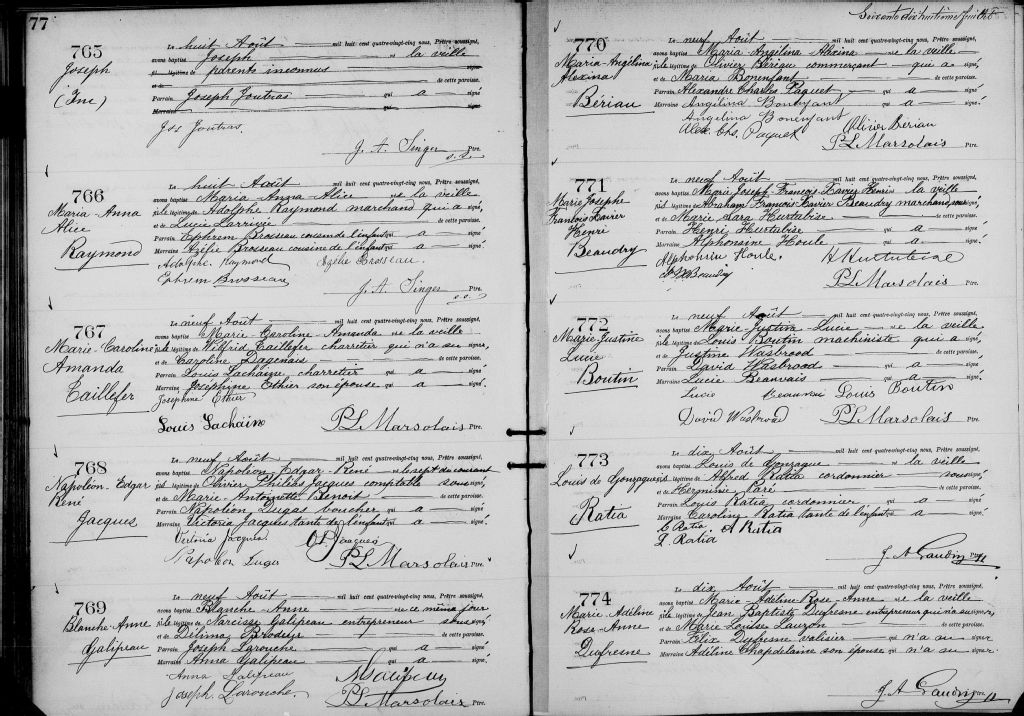 77
765
Joseph
(Inc)
Le huit Août mil huit cent quatre-vingt-cinq nous, Prêtre soussigné,
avons baptisé Joseph né la veille
fils légitime de parents inconnus
et de de cette paroisse.
Parrain Joseph Joutras qui a signé
Marraine qui signé
Jos Joutras
J. A. Singer Ptre.
s.s.
766
Maria-Anna
Alice
Raymond
Le huit Août mil huit cent quatre-vingt-cinq nous, Prêtre soussigné,
avons baptisé Maria-Anna Alice née la veille
fille légitime de Adolphe Raymond marchand qui a signé
et de Lucie Larrivée de cette paroisse.
Parrain Ephrem Brosseau cousin de l'enfant qui a signé
Marraine Azélie Brosseau cousine de l'enfant qui a signé
Adolphe Raymond Azélie Brosseau.
Ephrem Brosseau
J. A. Singer Ptre.
s.s.
767
Marie-Caroline
Amanda
Taillefer
Le neuf Août mil huit cent quatre-vingt-cinq nous, Prêtre soussigné,
avons baptisé Marie-Caroline-Amanda née la veille
fille légitime de Wilfrid Taillefer charretier qui n'a su signer,
et de Caroline Dagenais de cette paroisse.
Parrain Louis Lachaine charretier qui a signé
Marraine Josephine Ethier son épouse qui a signé
Josephine Ethier
Louis Lachaine P L Marsolais Ptre.
768
Napoléon-Edgar
René
Jacques
Le neuf Août mil huit cent quatre-vingt-cinq nous, Prêtre soussigné,
avons baptisé Napoléon Edgar René né le sept du courant
fils légitime de Olivier Philéas Jacques comptable soussigné,
et de Marie-Antoinette Benoit de cette paroisse.
Parrain Napoléon Dugas boucher qui a signé
Marraine Victoria Jacques tante de l'enfant qui a signé
Victoria Jacques O P Jacques
Napoléon Dugas P L Marsolais Ptre.
769
Blanche-Anne
Galipeau
Le neuf Août mil huit cent quatre-vingt-cinq nous, Prêtre soussigné,
avons baptisé Blanche-Anne née ce même jour
fille légitime de Narcisse Galipeau entrepreneur soussigné,
et de Délima Brodeur de cette paroisse.
Parrain Joseph Larouche qui a signé
Marraine Anna Galipeau qui a signé
Anna Galipeau N Galipeau
Joseph Larouche. P L Marsolais Ptre.
Soixante dix huitième feuillet
770
Maria-Angélina
Alexina
Bériau
Le neuf Août mil huit cent quatre-vingt-cinq nous, Prêtre soussigné,
avons baptisé Maria-Angélina Alexina née la veille
fille légitime de Olivier Bériau commerçant qui a signé,
et de Maria Bonenfant de cette paroisse.
Parrain Alexandre Charles Paquet, qui a signé
Marraine Angélina Bonenfant qui a signé
Angélina Bonenfant
Alex. Chs. Paquet Olivier Bériau
P L Marsolais Ptre.
771
Marie Joseph
François Xavier
Henri
Beaudry
Le neuf Août mil huit cent quatre-vingt-cinq nous, Prêtre soussigné,
avons baptisé Marie Joseph François Xavier Henri né la veille
fils légitime de Abraham François Xavier Beaudry marchand signé,
et de Marie Sara Hurtubise de cette paroisse.
Parrain Henri Hurtubise qui a signé
Marraine Alphonsine Houle qui a signé
Alphonsine Houle. H Hurtubise
Beaudry
P L Marsolais Ptre.
772
Marie-Justine
Lucie
Boutin
Le neuf Août mil huit cent quatre-vingt-cinq nous, Prêtre soussigné,
avons baptisé Marie-Justine-Lucie née la veille
fille légitime de Louis Boutin machiniste qui a signé,
et de Justine Wasbrood de cette paroisse.
Parrain David Wasbrood qui a signé
Marraine Lucie Beauvais qui a signé
Lucie Beauvais Louis Boutin
David Wasbrood P L Marsolais Ptre.
773
Louis de Gonzague
Ratia
Le dix Août mil huit cent quatre-vingt-cinq nous, Prêtre soussigné,
avons baptisé Louis de Gonzague né la veille
fils légitime de Alfred Ratia cordonnier soussigné,
et de Herminie Paré de cette paroisse.
Parrain Louis Ratia cordonnier qui a signé
Marraine Caroline Ratia tante de l'enfant qui a signé
C Ratia A Ratia
L. Ratia
J. A Gaudry Ptre
774
Marie Adéline
Rose-Anne
Dufresne
Le dix Août mil huit cent quatre-vingt-cinq nous, Prêtre soussigné,
avons baptisé Marie-Adéline Rose-Anne née la veille
fille légitime de Jean Baptiste Dufresne entrepreneur qui n'a su signer,
et de Marie Louise Lauzon de cette paroisse.
Parrain Félix Dufresne valisier qui n'a su signer
Marraine Adéline Chapdelaine son épouse qui n'a su signer.
J. A Gaudry Ptre